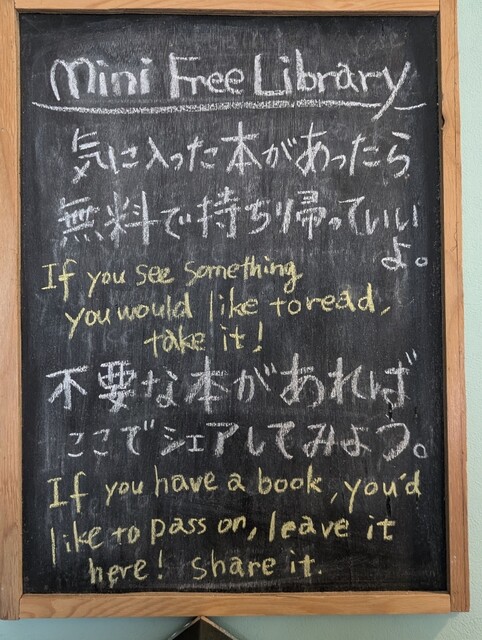 Mini Free Library
気に入った本があったら
無料で持ち帰っていい
よ。
If you see something
you would like to read,
take it!
不要な本があれば
ここでシェアしてみよう。
If you have a book, you'd
like to pass on, leave it
here! share it.